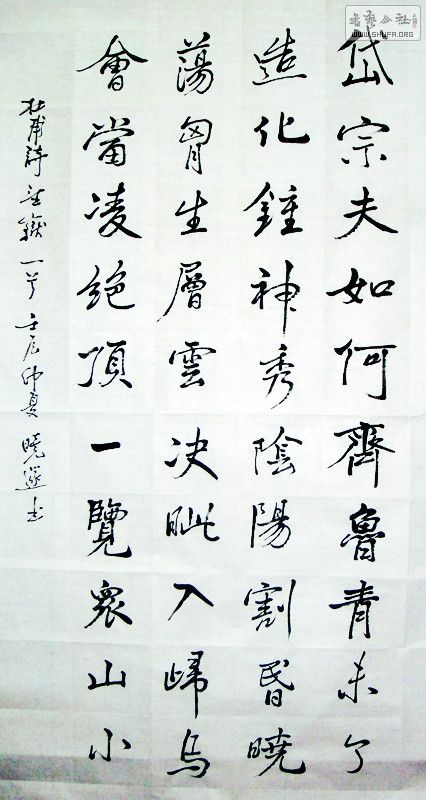 書藝公社
WWW.SHUFA.ORG
岱宗夫如何齊魯青未了
造化鍾神秀陰陽割昬曉
蕩胷生層雲决眦入歸鳥
會當凌絶頂一覽衆山小
杜甫詩望嶽一首壬辰仲夏曉書